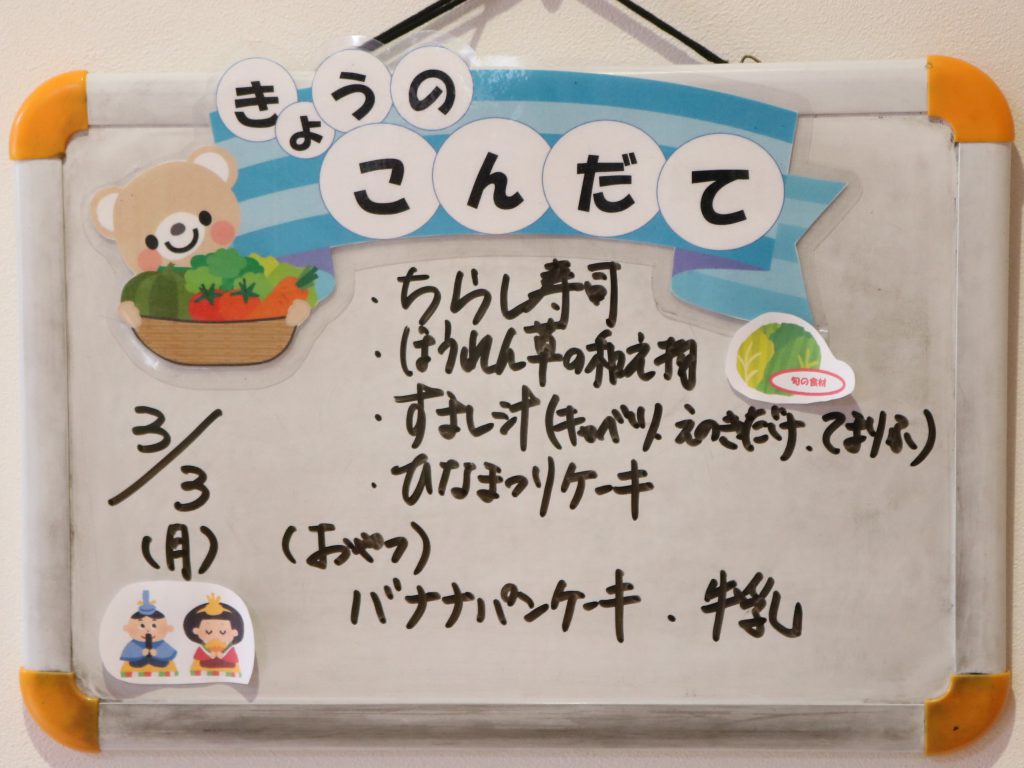 きょうの
こんだて
・ちらし寿司
・ほうれん草の和え物
旬の食材
・すまし汁(キャベツ、えのきだけ、てまりふ)
・ひなまつりケーキ
3/3
(月)
(おやつ)
バナナパンケーキ・牛乳